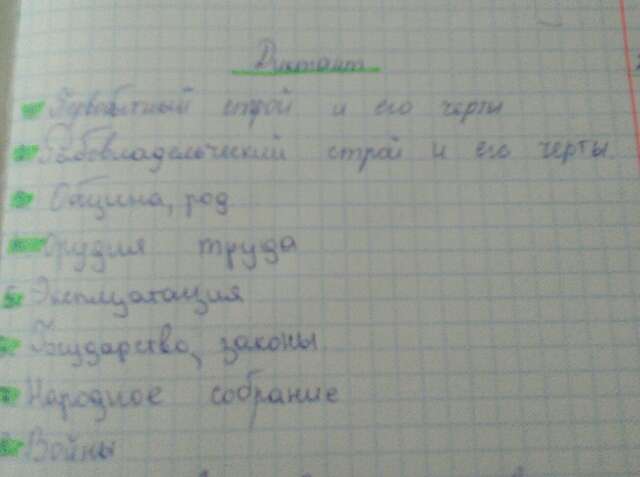 Диктант
Первобытный строй и его черты
Рабовладельческий строй и его черты
Община, род
Орудия труда
5. Эксплуатация
Государство, законы
Народное собрание
Войны